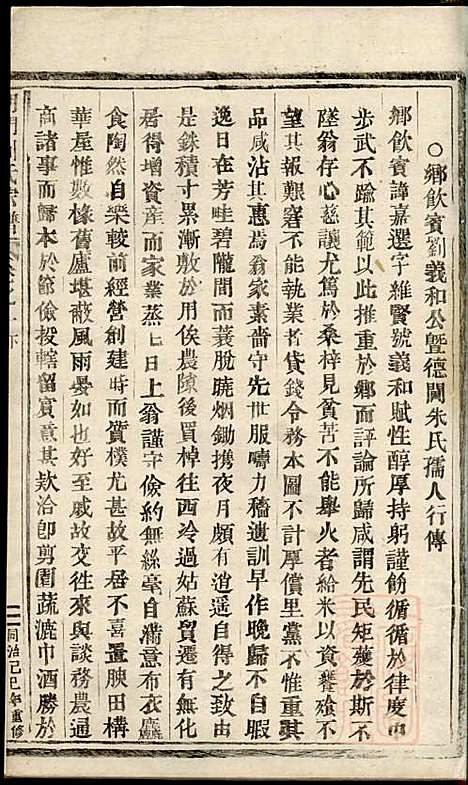 ○鄉飲賓劉義和公暨德閫朱氏孺人行傳
鄉飲賓諱嘉選字維賢號義和賦性醇厚持躬謹飭循循於律度中
步武不踰其範以此推重於鄉而評論所歸咸謂先民矩矱於斯不
墜翁存心慈讓尤篤於桑梓見貧苦不能舉火者給米以資饔飧不
望其報艱窘不能執業者貸錢令務本圖不計孳償里黨不惟重其
品咸沾其惠焉翁家素嗇守先世服疇力穡遺訓早作晚歸不自暇
逸日在芳畦碧隴間而蓑脫曉烟鋤携夜月頗有逍遥自得之致由
是銖積寸累漸敷於用俟農隙後買棹往西泠過姑蘇貿遷有無化
居得增資産而家業蒸七日上翁謹守儉約無絲毫自滿意布衣麤
食陶然自樂較前經營創建時而質樸尤甚故平居不喜置腴田構
華屋惟數椽舊廬堪蔽風雨晏如也好至戚故交往來與談務農通
商諸事而歸本於節儉投轄留賓意其欵洽卽剪園蔬漉巾酒勝於
同治己巳年重修